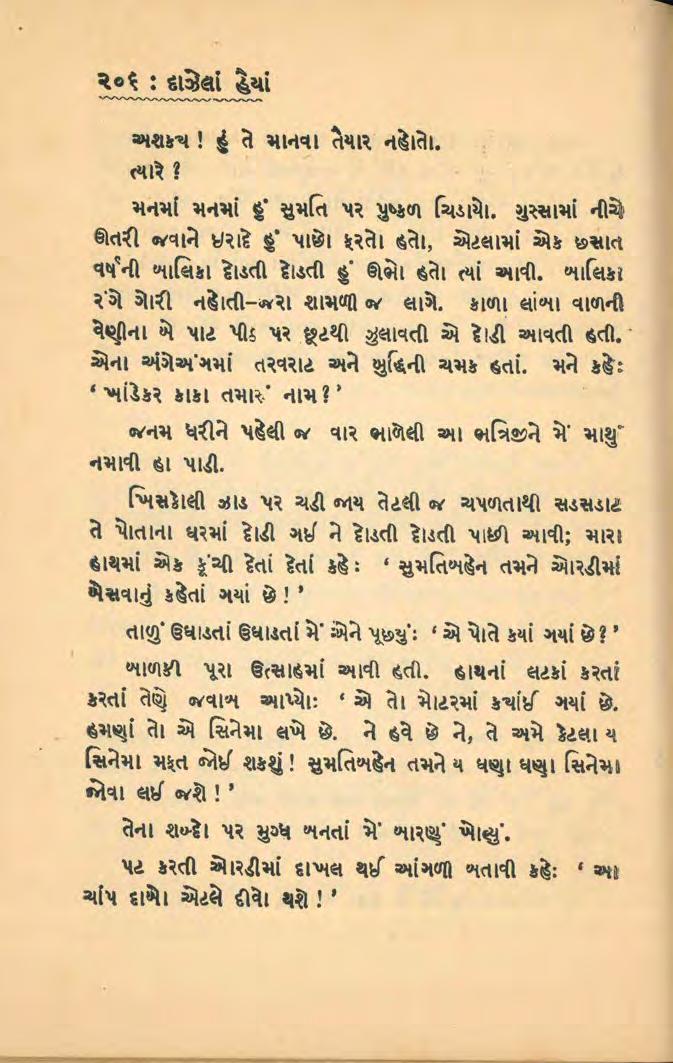 ૨૦૬ : દાઝેલાં હૈયાં
અશક્ય ! હું તે માનવા તૈયાર નહોતો.
ત્યારે ?
મનમાં મનમાં હું સુમતિ પર પુષ્કળ ચિડાયો. ગુસ્સામાં નીચે
ઊતરી જવાને ઇરાદે હું પાછો ફરતો હતો, એટલામાં એક છસાત
વર્ષની બાલિકા દોડતી દોડતી હું ઊભો હતો ત્યાં આવી. બાલિકા
રંગે ગોરી નહોતી–જરા શામળી જ લાગે. કાળા લાંબા વાળની
વેણીના બે પાટ પીઠ પર છૂટથી ઝુલાવતી એ દોડી આવતી હતી.
એના અંગેઅંગમાં તરવરાટ અને બુદ્ધિની ચમક હતાં. મને કહેઃ
‘ ખાંડેકર કાકા તમારું નામ ? ’
જનમ ધરીને પહેલી જ વાર ભાળેલી આ ભત્રિજીને મેં માથું
નમાવી હા પાડી.
ખિસકોલી ઝાડ પર ચડી જાય તેટલી જ ચપળતાથી સડસડાટ
તે પોતાના ઘરમાં દોડી ગઈ ને દોડતી દોડતી પાછી આવી; મારા
હાથમાં એક કૂંચી દેતાં દેતાં કહે : ‘ સુમતિબહેન તમને ઓરડીમાં
બેસવાનું કહેતાં ગયાં છે ! ’
તાળું ઉઘાડતાં ઉઘાડતાં મેં એને પૂછ્યું: ‘ એ પોતે ક્યાં ગયાં છે ? ’
બાળકી પૂરા ઉત્સાહમાં આવી હતી. હાથનાં લટકાં કરતાં
કરતાં તેણે જવાબ આપ્યો: ‘ એ તો મોટરમાં ક્યાંઈ ગયાં છે.
હમણાં તો એ સિનેમા લખે છે. ને હવે છે ને, તે અમે કેટલા ય
સિનેમા મફત જોઈ શકશું ! સુમતિબહેન તમને ય ઘણા ઘણા સિનેમા
જોવા લઈ જશે ! ’
તેના શબ્દો પર મુગ્ધ બનતાં મેં બારણું ખોલ્યું.
પટ કરતી ઓરડીમાં દાખલ થઈ આંગળી બતાવી કહેઃ ‘ આ
ચાંપ દાબો એટલે દીવો થશે ! ’